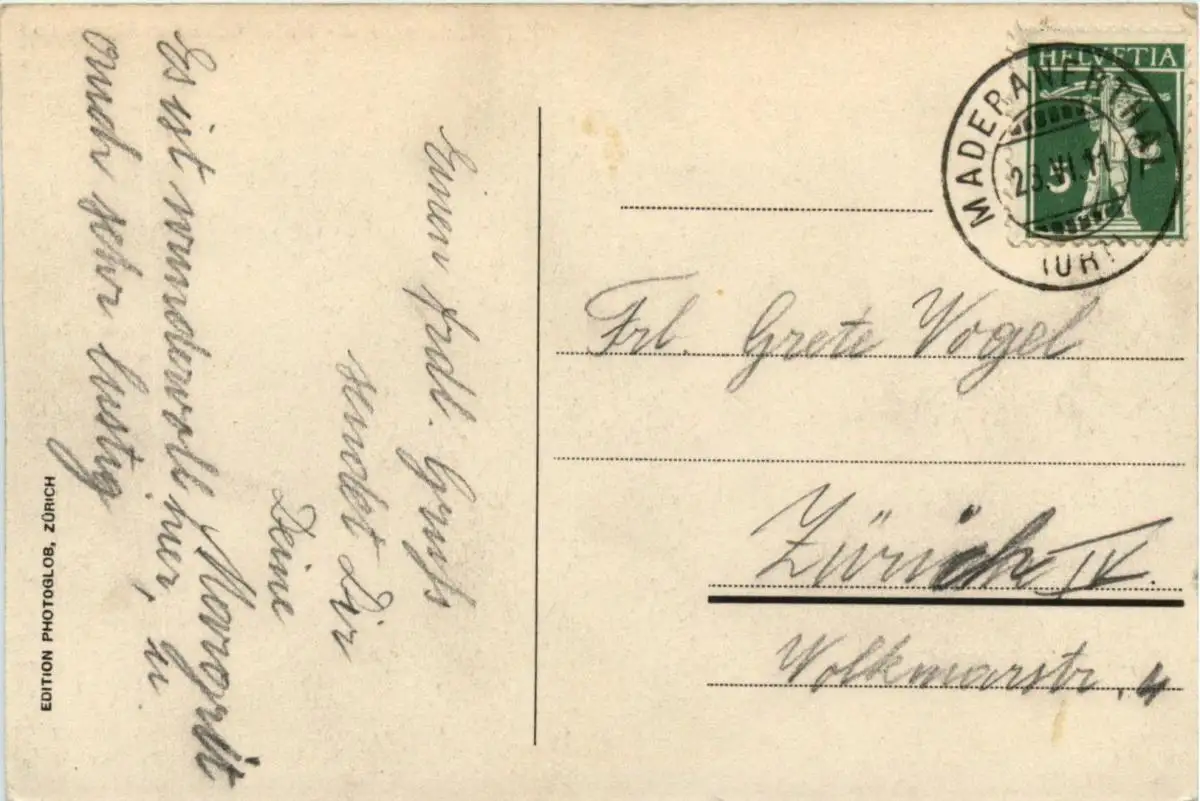 HELVETIA
5
MADERANERTHAL
23.VI.11
(URI)
Frl. Grete Vogel
Zürich IV.
Wolkmarstr. 4
Einen frdl. Gruß
sendet Dir
Deine
Margrit
Es ist wundervoll hier, u.
auch sehr lustig
EDITION PHOTOGLOB, ZÜRICH